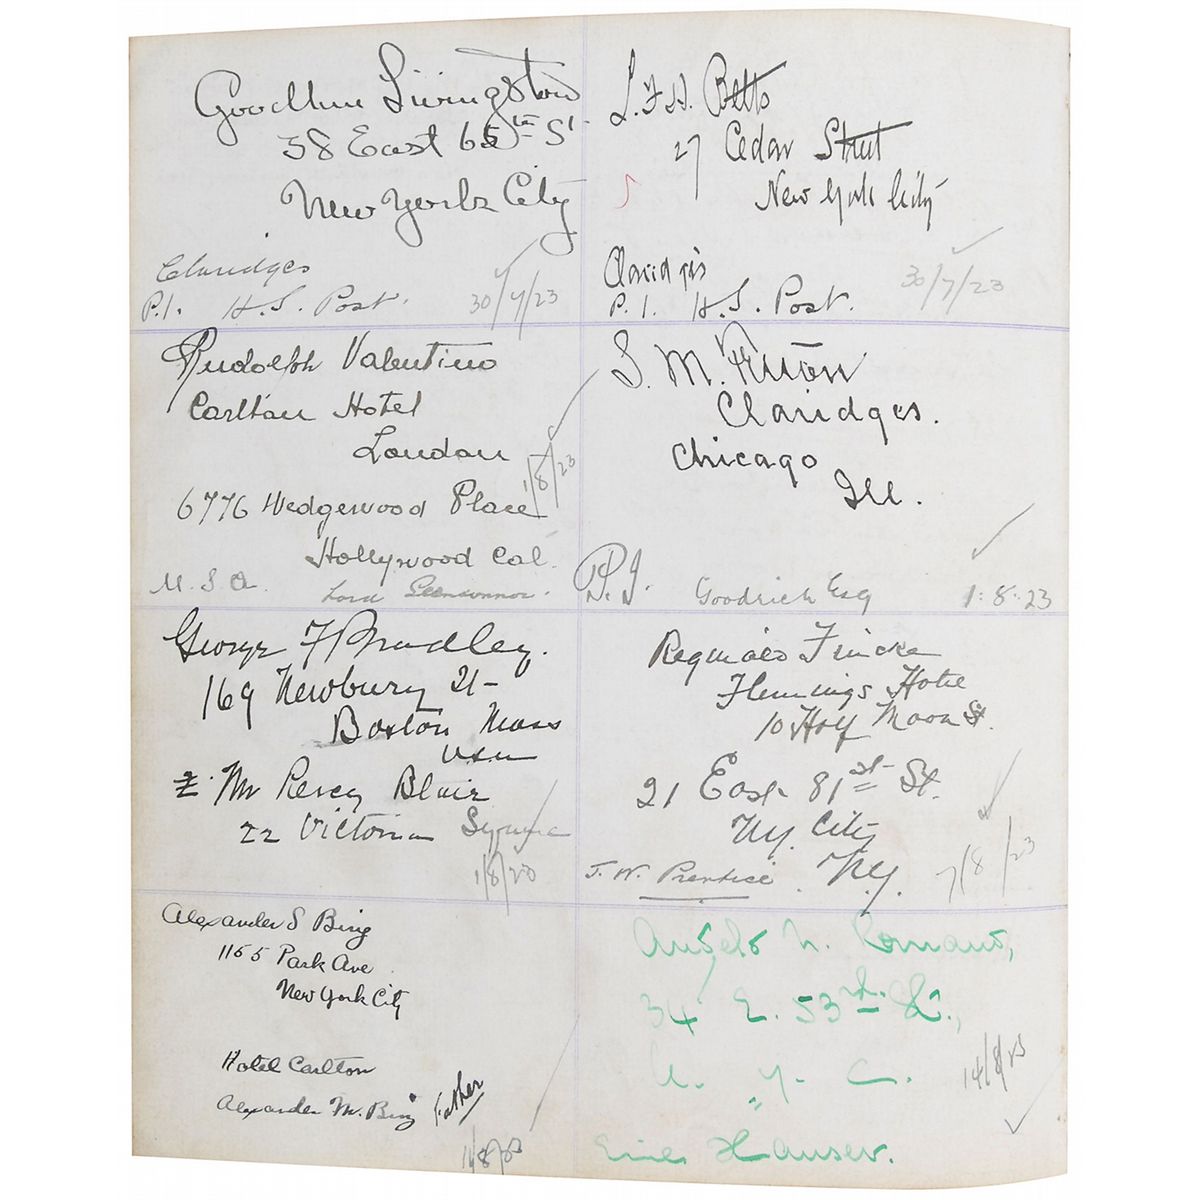 Goodhue Livingston
38 East 65th St
New York City
Claridges
P.1. H.S. Post. 30/7/23
L. F. H. Betts
27 Cedar Street
New York City
Claridges
P. 1. H. S. Post. 30/7/23
Rudolph Valentino
Carlton Hotel
London
1/8/23
6776 Wedgewood Place
Hollywood Cal.
U. S. A. Lord
S. M.
Claridges.
Chicago
Ill.
Goodrich Esq 1:8:23
George F Bradley.
169 Newbury St
Boston Mass
USA
Mr Percy Blair
22 Victoria Square
1/8/23
Reginald Fincke
Flemings Hotel
10 Half Moon St.
21 East 81st St.
N.Y. City
N.Y.
J. W. Prentice. 7/8/23
Alexander S Bing
1155 Park Ave
New York City
Hotel Carlton
Alexander M. Bing Father
Angelo N. Romano,
34 E. 53rd St.,
N. Y. C.
14/8/23
" Hauser.